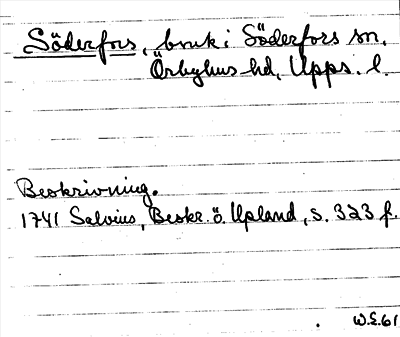 Söderfors, bruk i Söderfors sn.
Örbyhus hd, Upps. l.
Beskrivning.
1741 Salvius, Beskr. ö. Upland, s. 323 f.
W.E.61